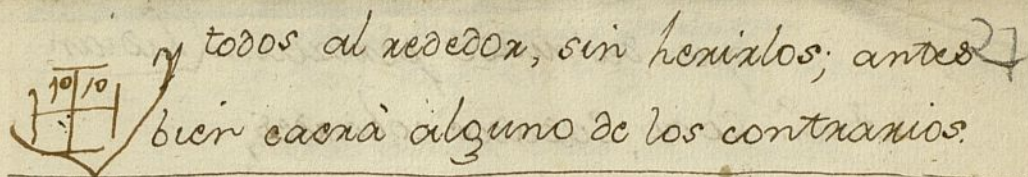 y todos al rededor, sin herirlos; antes 27
10 10
bien caerà alguno de los contrarios.